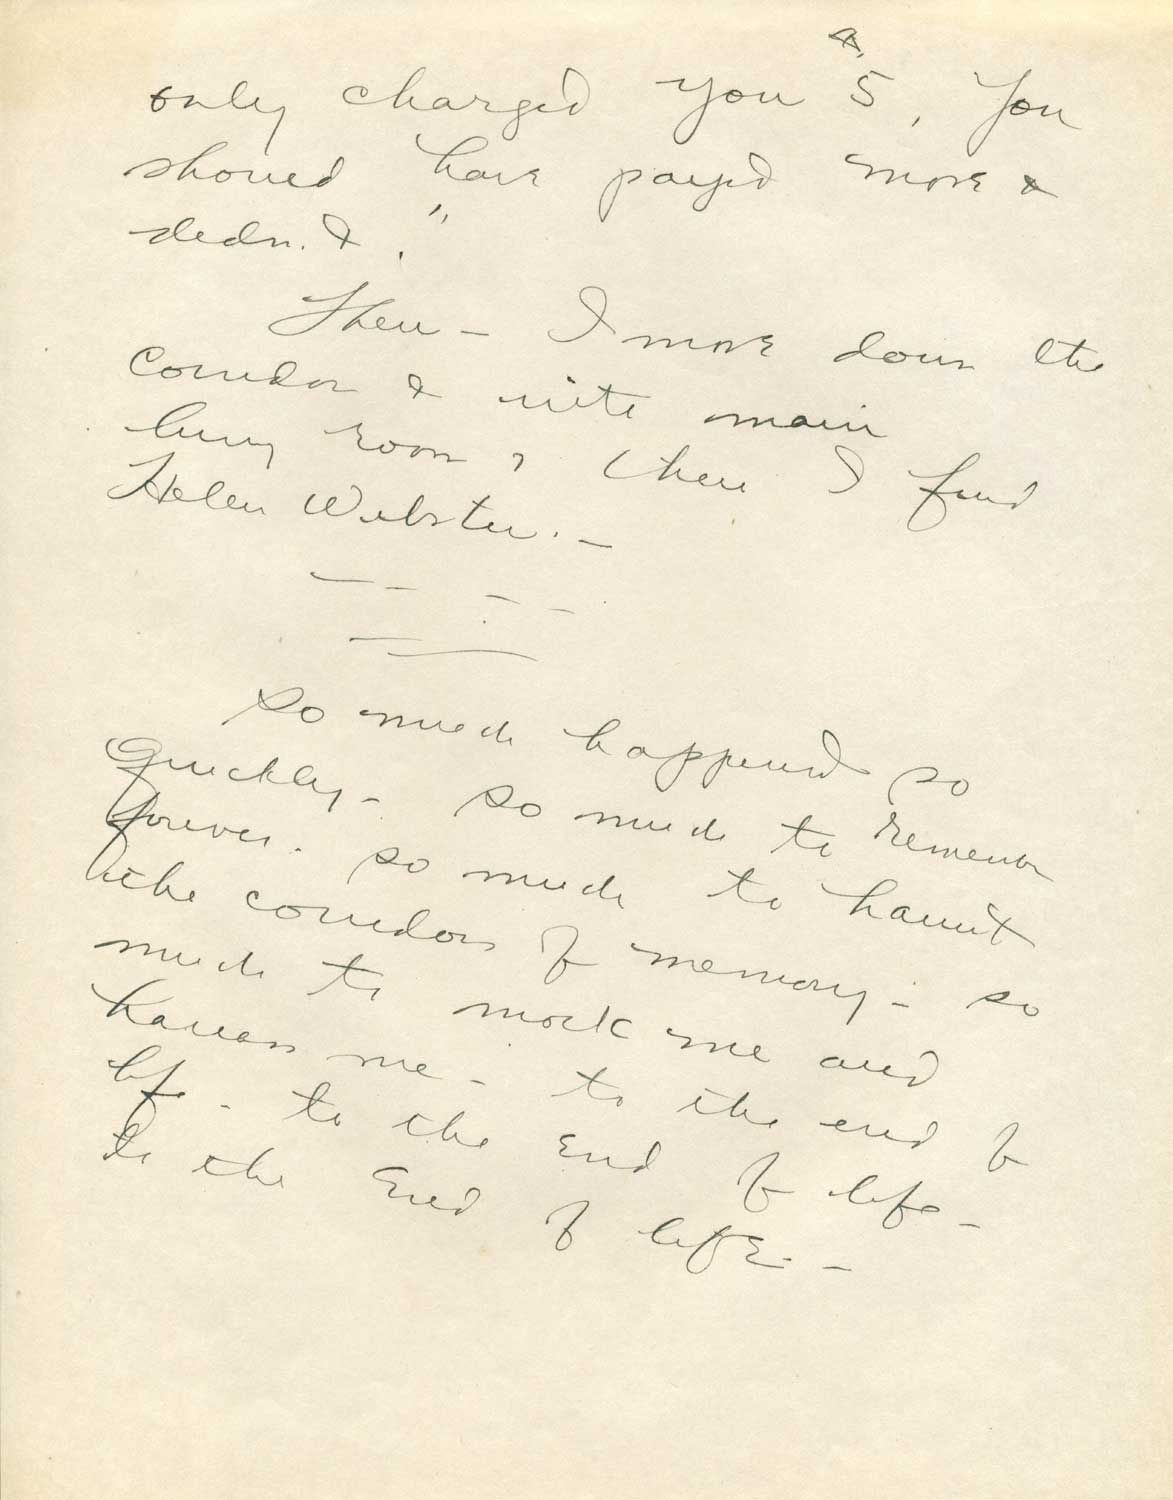 only charged you 5, You
should have payed more &
didn't."
Then — I move down the
corridor & into main
living room & there I find
Helen Webster. —
So much happened so
quickly — so much to remember
forever. so much to haunt
the corridors of memory — so
much to mock me and
harass me — to the end of
life — to the end of life —
to the end of life. —